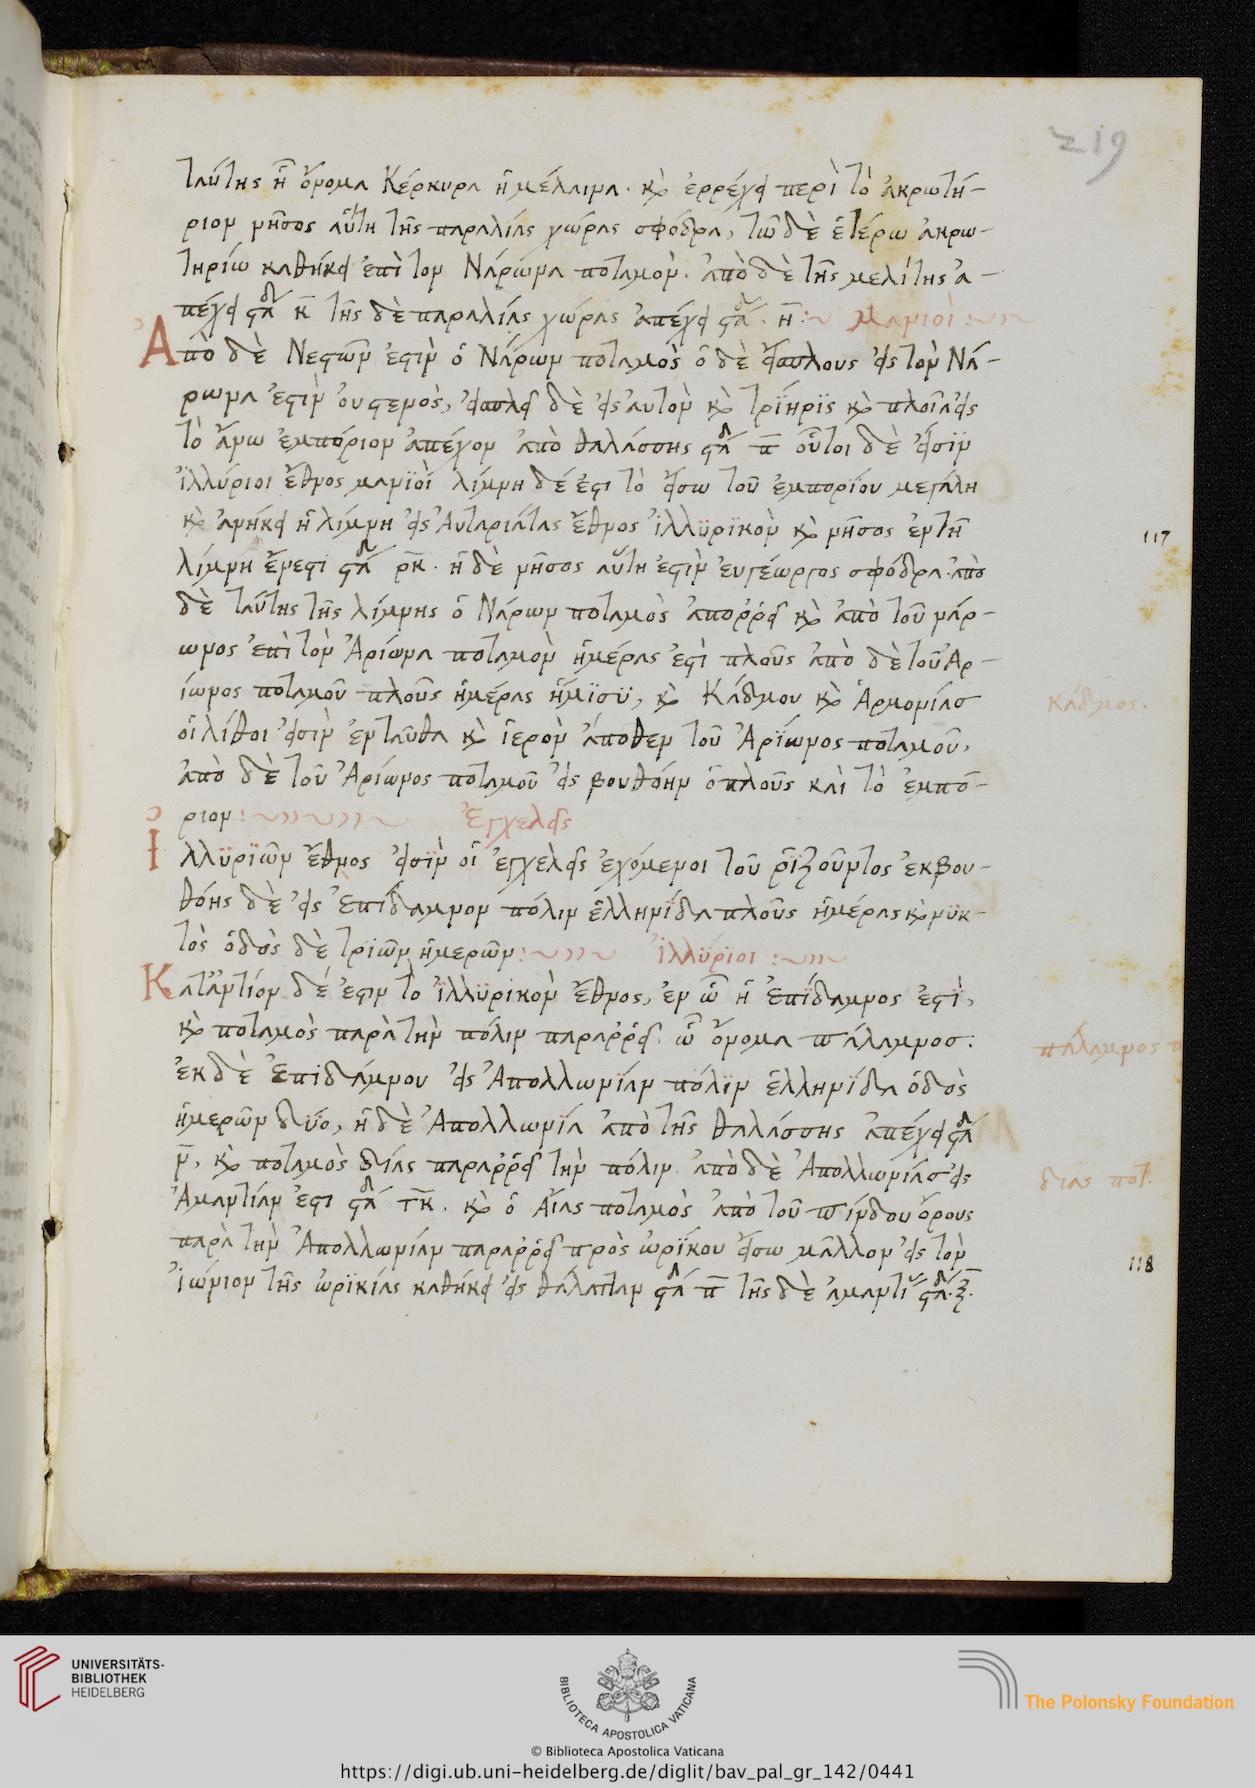 219
ταύτης ἧ ὄνομα Κέρκυρα ἡ μέλαινα. καὶ ἐρρέχει περὶ τὸ ἀκρωτή-
ριον νῆσος αὕτη τῆς παραλίας χώρας σφόδρα, τῶ δὲ ἑτέρω ἀκρω-
τηρίω καθήκει ἐπὶ τον Νάρωνα ποταμόν. ἀπὸ δὲ τῆς μελίτης ἀ-
πέχει στά κ τῆς δὲ παραλίας χώρας ἀπέχει στά. η :~ Μανιοί :~
Ἀπὸ δὲ Νεστῶν ἐστὶν ὁ Νάρων ποταμὸς ὁ δὲ εἴσπλους εἰς τὸν Νά-
ρωνα ἐστὶν ου στενὸς, εἰσπλεῖ δὲ εἰς αυτὸν καὶ τρίηρϊς καὶ πλοῖα εἰς
τὸ ἄνω ἐμπόριον ἀπέχον ἀπὸ θαλάσσης στά π οὗτοι δὲ εἴσϊν
ϊλλύριοι ἔθνος μανϊοὶ λίμνη δέ ἐστι τὸ εἴσω τοῦ ἐμπορίου μεγάλη
καὶ ἀνήκει ἡ λίμνη εἰς Ἀυταριάτας ἔθνος ϊλλϋρϊκὸν καὶ νῆσος ἐν τῆ
λίμνη ἔνεστι στά ρκ. ἡ δὲ νῆσος αὕτη ἐστὶν ἐυγέωργος σφόδρα. ἀπὸ
δὲ ταύτης τῆς λίμνης ὁ Νάρων ποταμὸς ἀπορρεῖ καὶ ἀπὸ τοῦ νάρ-
ωνος ἐπὶ τὸν Ἀρίωνα ποταμὸν ἡμέρας ἐστὶ πλοῦς ἀπὸ δὲ τοῦ Ἀρ-
ίωνος ποταμοῦ πλοῦς ἡμέρας ἥμϊσϋ, καὶ Κάδμου καὶ Ἁρμονίας
οἱ λίθοι εἰσὶν ἐνταῦθα καὶ ἱερὸν ἄποθεν τοῦ Ἀρϊωνος ποταμοῦ,
ἀπὸ δὲ τοῦ Ἀρίωνος ποταμοῦ εἰς βουθόην ὁ πλοῦς καὶ τὸ ἐμπό-
ριον :~ Ἐγχελεῖς
Ιλλϋρϊῶν ἔθνος εἰσϊν οἱ ἐγχελεῖς ἐχόμενοι τοῦ ῥϊζοῦντος ἐκ βου-
θόης δὲ εἰς Ἐπίδαμνον πόλιν ἑλληνίδα πλοῦς ἡμέρας καὶ νϋκ-
τὸς ὁδὸς δὲ τρϊῶν ἡμερῶν :~ ϊλλϋρϊοι :~
Κατἀντίον δέ ἐστιν το ϊλλϋρικὸν ἔθνος, ἐν ὧ ἡ ἐπίδαμνος ἐστϊ,
καὶ ποταμὸς παρὰ τὴν πόλιν παραρρεῖ. ὧ ὄνομα πάλαμνοσ:
ἐκ δὲ ἐπιδάμνου εἰς Ἀπολλωνίαν πόλϊν ἑλληνίδα ὁδὸς
ἡμερῶν δϋο, ἡ δὲ Ἀπολλωνϊα ἀπὸ τῆς θαλάσσης ἀπέχει στά
ν, καὶ ποταμὸς δίας παραρρεῖ τὴν πόλιν. ἀπὸ δὲ Ἀπολλωνίασ εἰς
Ἀμαντίαν ἐστι στά τκ. καὶ ὁ Αἴας ποταμὸς ἀπὸ τοῦ πίνδου ὄρους
παρὰ τὴν Ἀπολλωνίαν παραρρεῖ πρὸς ὠρϊκου εἴσω μᾶλλον εἰς τὸν
ἰώνιον τῆς ὠρϊκίας καθήκει εἰς θάλατταν στά π τῆς δὲ ἀμαντί στά. ξ.
117
κάδμος.
πάλαμνος π
δίας ποτ.
118
UNIVERSITÄTS-
BIBLIOTHEK
HEIDELBERG
BIBLIOTECA APOSTOLICA VATICANA
The Polonsky Foundation
© Biblioteca Apostolica Vaticana
https://digi.ub.uni-heidelberg.de/diglit/bav_pal_gr_142/0441